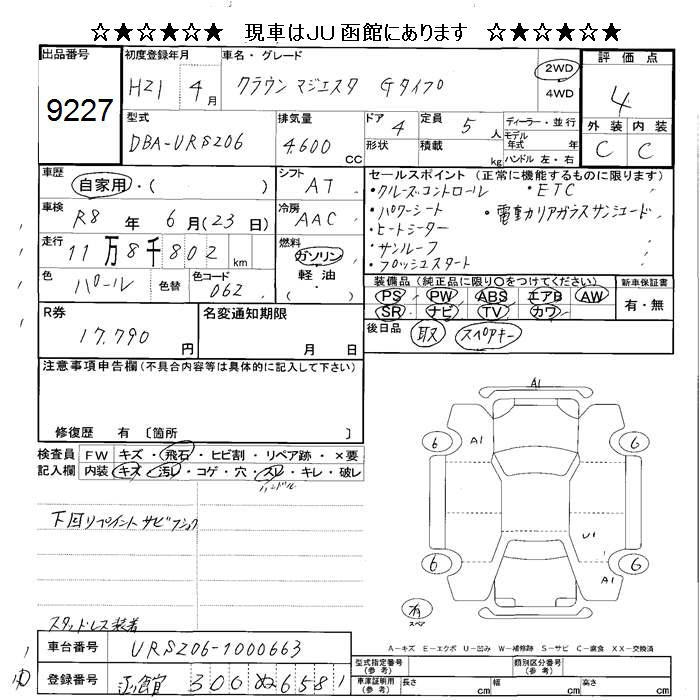 ☆★☆★☆★ 現車はJU函館にあります ☆★☆★☆★
出品番号 初度登録年月 車名・グレード 評価点
9227 H21 4月 クラウン マジェスタ Gタイプ 2WD 4WD 4
型式 排気量 ドア 4 定員 5人 ディーラー・並行 外装 内装
DBA-URS206 4,600cc 形状 積載 kg モデル年式 年 C C
ハンドル 左・右
車歴 自家用・( ) シフト AT セールスポイント (正常に機能するものに限ります)
・クルーズコントロール ・ETC
車検 R8年 6月(23日) 冷房 AAC ・パワーシート ・電動カリアガラスサンシェード
・ヒートシーター
走行 11万8千802km 燃料 ガソリン 軽油 ( ) ・サンルーフ
・プッシュスタート
色 パール 色替 色コード 062 装備品 (純正品に限り○をつけてください) 新車保証書
PS PW ABS エアB AW 有・無
SR ナビ TV カワ
R券 17,790円 名変通知期限 月 日 後日品 取 スペアキー
注意事項申告欄(不具合内容等は具体的に記入して下さい)
修復歴 有 〔箇所 〕
検査員 FW キズ・飛石・ヒビ割・リペア跡・×要
記入欄 内装 キズ・汚レ・コゲ・穴・スレ・キレ・破レ
ハンドル
下回リペイント サビフショク
スタッドレス装着
A1
6 A1 6
U1
6 A1 6
有
スペア
A-キズ E-エクボ U-凹み W-補修跡 S-サビ C-腐食 XX-交換済
車台番号 URS206-1000663
型式指定番号(参考) 類別区分番号(参考)
登録番号 函館 300 ぬ 6581
車庫証明用(参考) 長さ cm 幅 cm 高さ cm